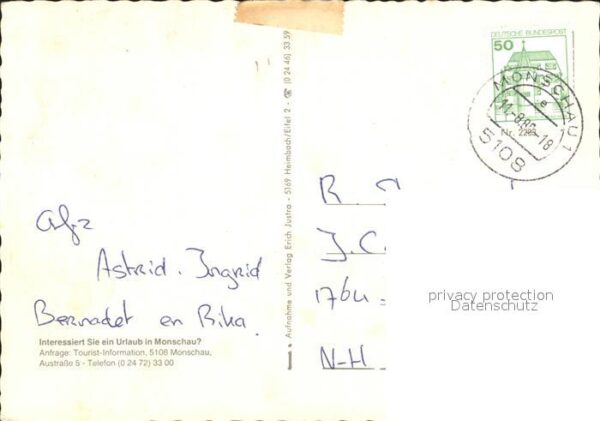 DEUTSCHE BUNDESPOST
50
MONSCHAU 1
-18
5108
Nr. 2283
Afz
Astrid. Ingrid
Bernadet en Rika.
Interessiert Sie ein Urlaub in Monschau?
Anfrage: Tourist-Information, 5108 Monschau,
Austraße 5 - Telefon (0 24 72) 33 00
Aufnahme und Verlag Erich Justra - 5169 Heimbach/Eifel 2 - ☎ (0 24 46) 33 59
R.
J.C.
N-H
privacy protection
Datenschutz